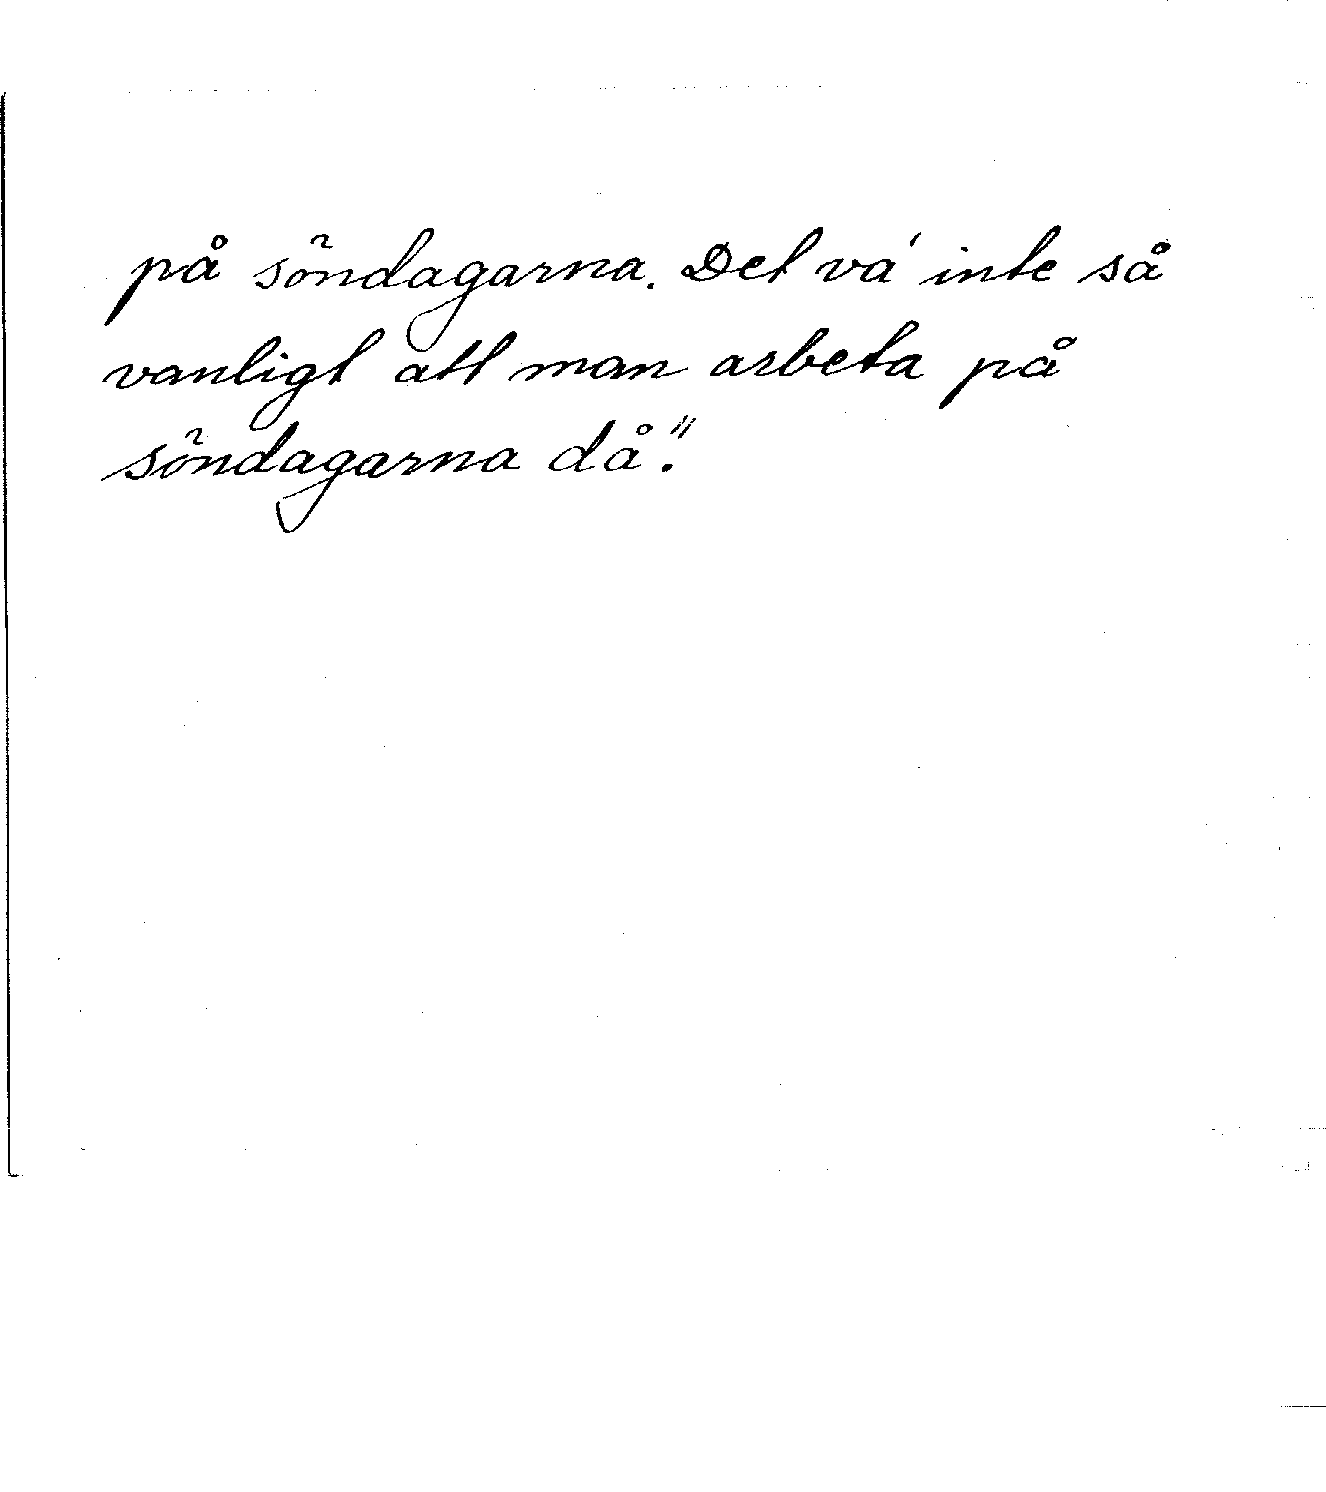 på söndagarna. Det va' inte så
vanligt att man arbeta på
söndagarna då."